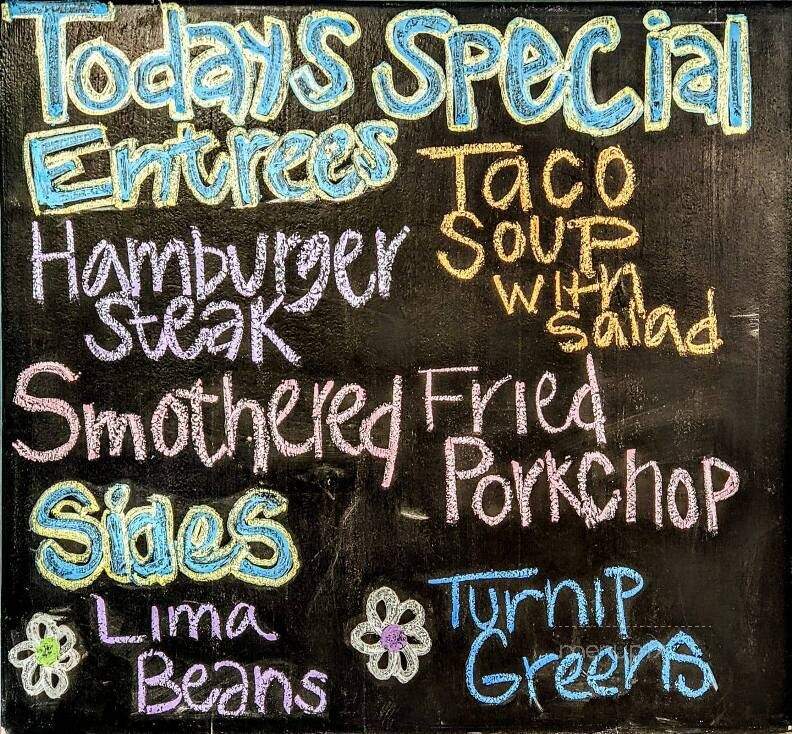 Todays Special
Entrees
Hamburger
steak
Taco
Soup
with
salad
Smothered Fried
Porkchop
Sides
Lima
Beans
Turnip
Greens